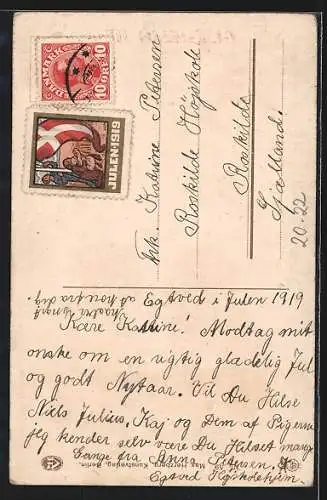 DANMARK
10 ØRE 10
JULEN·1919
Frk. Katrine Petersen
Roskilde Højskole
Roskilde
Sjælland.
20-22
Egtved i Julen 1919
at høre fra dig
Kære Katrine! Modtag mit
ønske om en rigtig glædelig Jul
og godt Nytaar. Vil Du Hilse
Niels Julius, Kaj og Dem af Pigerne
jeg kender selv være Du Hilset mang
Gange fra
Petersen.
Egtved Højskolehjem.